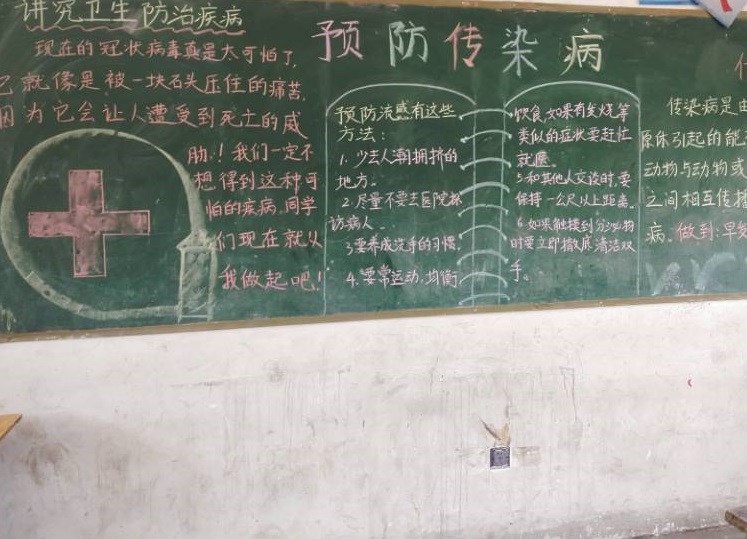 讲究卫生 防治疾病
现在的冠状病毒真是太可怕了,
它就像是被一块石头压住的痛苦,
因为它会让人遭受到死亡的威
胁!我们一定不
想得到这种可
怕的疾病,同学
们现在就从
我做起吧!
预防传染病
预防流感有这些
方法:
1.少去人潮拥挤的
地方。
2.尽量不要去医院探
访病人。
3.要养成洗手的习惯。
4.要常运动,均衡
饮食,如果有发烧等
类似的症状要赶忙
就医。
5.和其他人交谈时,要
保持一么尺以上距离。
6.如果触摸到分泌物
时要立即撤底清洁双
手。
传染病是由
原体引起的能
动物与动物或
之间相互传播
病。做到:早发